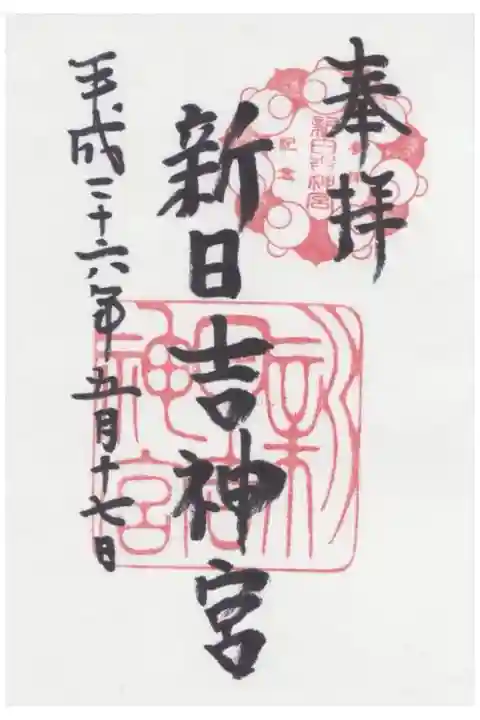 奉拝
新日吉神宮
平成二十六年五月十七日
新日吉神宮
参拝
記念
新日吉神宮